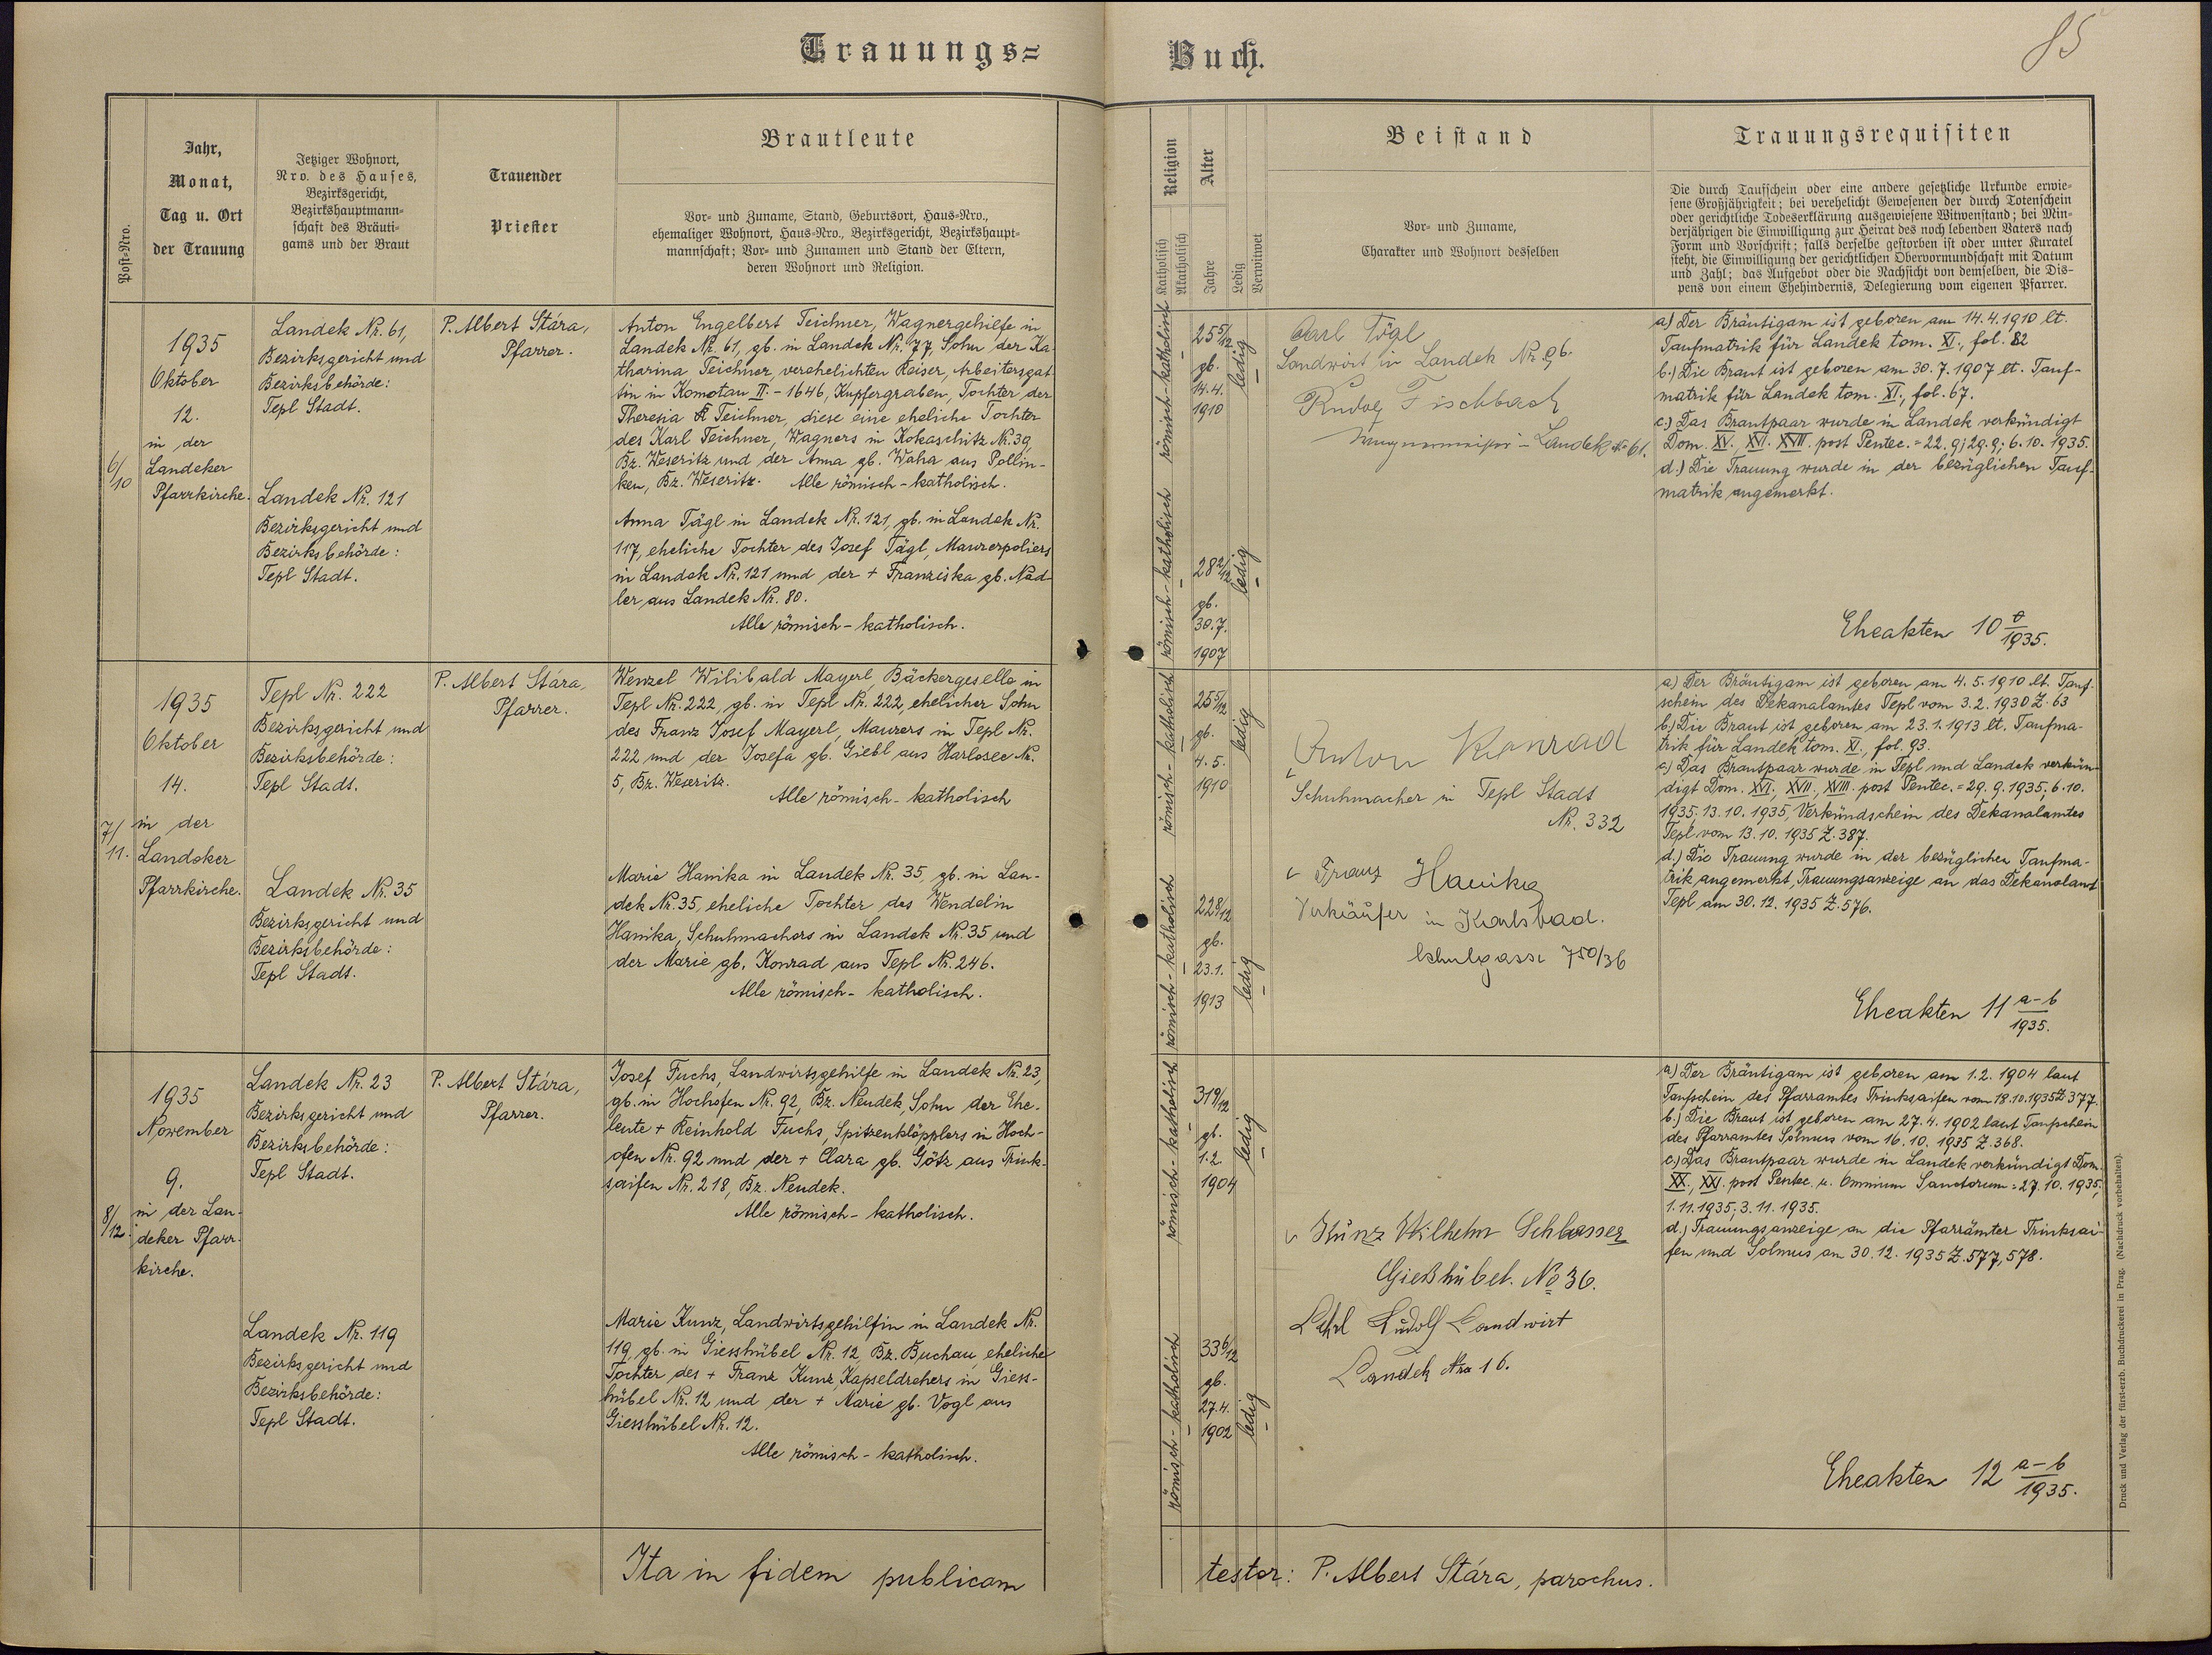 Trauungs=
Buch.
85
Post=Nro.
Jahr,
Monat,
Tag u. Ort
der Trauung
Jetziger Wohnort,
Nro. des Hauses,
Bezirksgericht,
Bezirkshauptmann=
schaft des Bräuti=
gams und der Braut
Trauender
Priester
Brautleute
Vor= und Zuname, Stand, Geburtsort, Haus=Nro.,
ehemaliger Wohnort, Haus=Nro., Bezirksgericht, Bezirkshaupt=
mannschaft; Vor= und Zunamen und Stand der Eltern,
deren Wohnort und Religion.
Religion
Katholisch
Akatholisch
Alter
Jahre
Ledig
Verwitwet
Beistand
Vor= und Zuname,
Charakter und Wohnort desselben
Trauungsrequisiten
Die durch Taufschein oder eine andere gesetzliche Urkunde erwie=
sene Großjährigkeit; bei verehelicht Gewesenen der durch Totenschein
oder gerichtliche Todeserklärung ausgewiesene Witwenstand; bei Min=
derjährigen die Einwilligung zur Heirat des noch lebenden Vaters nach
Form und Vorschrift; falls derselbe gestorben ist oder unter Kuratel
steht, die Einwilligung der gerichtlichen Obervormundschaft mit Datum
und Zahl; das Aufgebot oder die Nachsicht von demselben, die Dis=
pens von einem Ehehindernis, Delegierung vom eigenen Pfarrer.
6/10
1935
Oktober
12.
in der
Landeker
Pfarrkirche.
Landek Nr. 61,
Bezirksgericht und
Bezirksbehörde:
Tepl Stadt.
Landek Nr. 121
Bezirksgericht und
Bezirksbehörde:
Tepl Stadt.
P. Albert Stára,
Pfarrer.
Anton Engelbert Teichner, Wagnergehilfe in
Landek Nr. 61, gb. in Landek Nr. 77, Sohn der Ka-
tharina Teichner, verehelichten Kaiser, Arbeitersgat-
tin in Komotau II. - 1646, Kupfergraben, Tochter der
Theresia Teichner, diese eine eheliche Tochter
des Karl Teichner, Wagners in Kokaschitz Nr. 39,
Bz. Weseritz und der Anna gb. Waha aus Pollin-
ken, Bz. Weseritz. Alle römisch-katholisch.
Anna Tägl in Landek Nr. 121, gb. in Landek Nr.
117, eheliche Tochter des Josef Tägl, Maurerpoliers
in Landek Nr. 121 und der + Franziska gb. Nad-
ler aus Landek Nr. 80.
Alle römisch-katholisch.
römisch-katholisch
25 5/12
gb.
14.4.
1910
ledig
römisch-katholisch
28 2/12
gb.
30.7.
1907
ledig
Carl Tögl
Landwirt in Landek Nr. 96.
Rudolf Fischbach
Wagnermeister - Landek № 61.
a.) Der Bräutigam ist geboren am 14.4.1910 lt.
Taufmatrik für Landek tom. XI., fol. 82
b.) Die Braut ist geboren am 30.7.1907 lt. Tauf-
matrik für Landek tom. XI., fol. 67.
c.) Das Brautpaar wurde in Landek verkündigt
Dom. XV. XVI. XVII. post Pentec. = 22.9; 29.9; 6.10. 1935.
d.) Die Trauung wurde in der bezüglichen Tauf-
matrik angemerkt.
Eheakten 10 0/1935.
7/11.
1935
Oktober
14.
in der
Landeker
Pfarrkirche.
Tepl Nr. 222
Bezirksgericht und
Bezirksbehörde:
Tepl Stadt.
Landek Nr. 35
Bezirksgericht und
Bezirksbehörde:
Tepl Stadt.
P. Albert Stára,
Pfarrer.
Wenzel Wilibald Mayerl, Bäckergeselle in
Tepl Nr. 222, gb. in Tepl Nr. 222, ehelicher Sohn
des Franz Josef Mayerl, Maurers in Tepl Nr.
222 und der Josefa gb. Giebl aus Harlosee Nr.
5, Bz. Weseritz.
Alle römisch-katholisch
Marie Hanika in Landek Nr. 35, gb. in Lan-
dek Nr. 35, eheliche Tochter des Wendelin
Hanika, Schuhmachers in Landek Nr. 35 und
der Marie gb. Konrad aus Tepl Nr. 246.
Alle römisch-katholisch.
römisch-katholisch
25 5/12
gb.
4.5.
1910
ledig
römisch-katholisch
22 8/12
gb.
23.1.
1913
ledig
Anton Konrad
Schuhmacher in Tepl Stadt
Nr. 332
Franz Hanika
Verkäufer in Karlsbad.
Schulgasse 750/36
a.) Der Bräutigam ist geboren am 4.5.1910 lt. Tauf-
schein des Dekanalamtes Tepl vom 3.2.1930 Z. 63
b.) Die Braut ist geboren am 23.1.1913 lt. Taufma-
trik für Landek tom. XI., fol. 93.
c.) Das Brautpaar wurde in Tepl und Landek verkün-
digt Dom. XVI., XVII., XVIII. post Pentec. = 29.9.1935; 6.10.
1935; 13.10.1935, Verkündschein des Dekanalamtes
Tepl vom 13.10.1935 Z. 387.
d.) Die Trauung wurde in der bezüglichen Taufma-
trik angemerkt, Trauungsanzeige an das Dekanalamt
Tepl am 30.12.1935 Z. 576.
Eheakten 11 a-b/1935.
8/12.
1935
November
9.
in der Lan-
deker Pfarr-
kirche.
Landek Nr. 23
Bezirksgericht und
Bezirksbehörde:
Tepl Stadt.
Landek Nr. 119
Bezirksgericht und
Bezirksbehörde:
Tepl Stadt.
P. Albert Stára,
Pfarrer.
Josef Fuchs, Landwirtsgehilfe in Landek Nr. 23,
gb. in Hochofen Nr. 92, Bz. Neudek, Sohn der Ehe-
leute + Reinhold Fuchs, Spitzenklöpplers in Hoch-
ofen Nr. 92 und der + Clara gb. Götz aus Trink-
saifen Nr. 218, Bz. Neudek.
Alle römisch-katholisch.
Marie Kunz, Landwirtsgehilfin in Landek Nr.
119, gb. in Giesshübel Nr. 12, Bz. Buchau, eheliche
Tochter des + Franz Kunz, Kapseldrehers in Giess-
hübel Nr. 12 und der + Marie gb. Vogl aus
Giesshübel Nr. 12.
Alle römisch-katholisch.
römisch-katholisch
31 9/12
gb.
1.2.
1904
ledig
römisch-katholisch
33 6/12
gb.
27.4.
1902
ledig
Kunz Wilhelm Schlosser
Gießhübel. № 36.
Lehrl Rudolf Landwirt
Landek Nro 16.
a.) Der Bräutigam ist geboren am 1.2.1904 laut
Taufschein des Pfarramtes Trinksaifen vom 18.10.1935 Z. 377.
b.) Die Braut ist geboren am 27.4.1902 laut Taufschein
des Pfarramtes Solmus vom 16.10.1935 Z. 368.
c.) Das Brautpaar wurde in Landek verkündigt Dom.
XX., XXI. post Pentec. u. Omnium Sanctorum = 27.10.1935;
1.11.1935; 3.11.1935.
d.) Trauungsanzeige an die Pfarrämter Trinksai-
fen und Solmus am 30.12.1935 Z. 577, 578.
Eheakten 12 a-b/1935.
Ita in fidem publicam
testor: P. Albert Stára, parochus.
Druck und Verlag der fürst-erzb. Buchdruckerei in Prag. (Nachdruck vorbehalten).